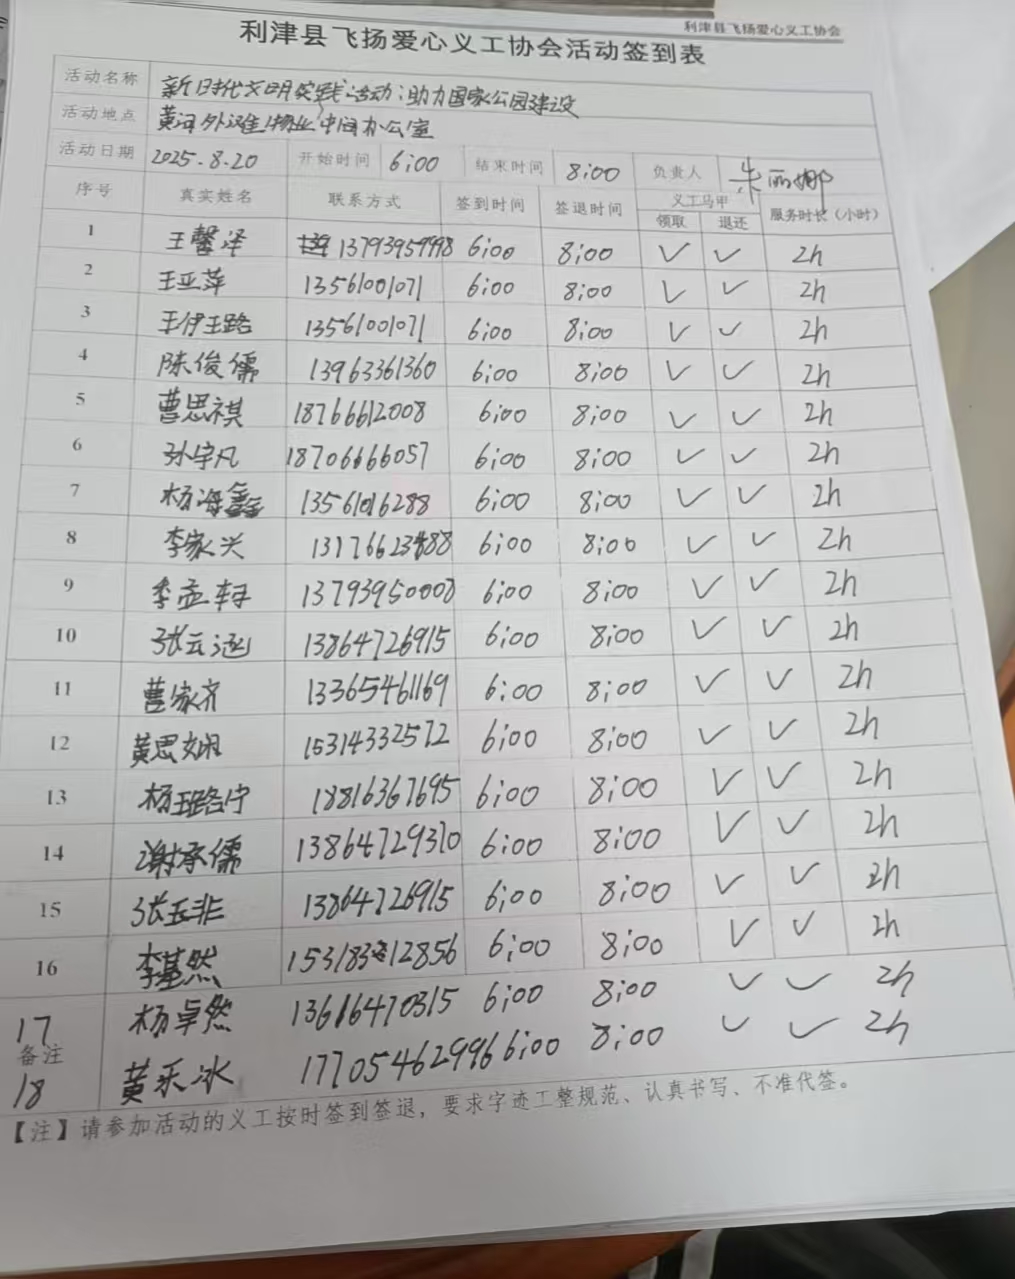 利津县飞扬爱心义工协会
利津县飞扬爱心义工协会活动签到表
活动名称 新时代文明实践活动:助力国家公园建设
活动地点 黄河外滩物业中间办公室
活动日期 2025.8.20 开始时间 6:00 结束时间 8:00 负责人 朱丽娜
序号 真实姓名 联系方式 签到时间 签退时间 义工马甲 服务时长(小时)
领取 退还
1 王馨泽 13793959998 6:00 8:00 ✓ ✓ 2h
2 王亚萍 13561001071 6:00 8:00 ✓ ✓ 2h
3 王伊璐 13561001071 6:00 8:00 ✓ ✓ 2h
4 陈俊儒 13963361360 6:00 8:00 ✓ ✓ 2h
5 曹思祺 18766612008 6:00 8:00 ✓ ✓ 2h
6 孙宇凡 18706666057 6:00 8:00 ✓ ✓ 2h
7 杨海鑫 13561016288 6:00 8:00 ✓ ✓ 2h
8 李家兴 6:00 8:00 ✓ ✓ 2h
9 李孟轩 13793950008 6:00 8:00 ✓ ✓ 2h
10 张云涵 13864726915 6:00 8:00 ✓ ✓ 2h
11 曹家齐 13365461169 6:00 8:00 ✓ ✓ 2h
12 黄思娴 15314332572 6:00 8:00 ✓ ✓ 2h
13 杨璐宁 18816367695 6:00 8:00 ✓ ✓ 2h
14 谢承儒 13864729370 6:00 8:00 ✓ ✓ 2h
15 张玉非 13864726915 6:00 8:00 ✓ ✓ 2h
16 李基然 15318312856 6:00 8:00 ✓ ✓ 2h
17 杨卓然 13616470315 6:00 8:00 ✓ ✓ 2h
备注
18 黄乐冰 17705462996 6:00 8:00 ✓ ✓ 2h
【注】请参加活动的义工按时签到签退,要求字迹工整规范、认真书写、不准代签。